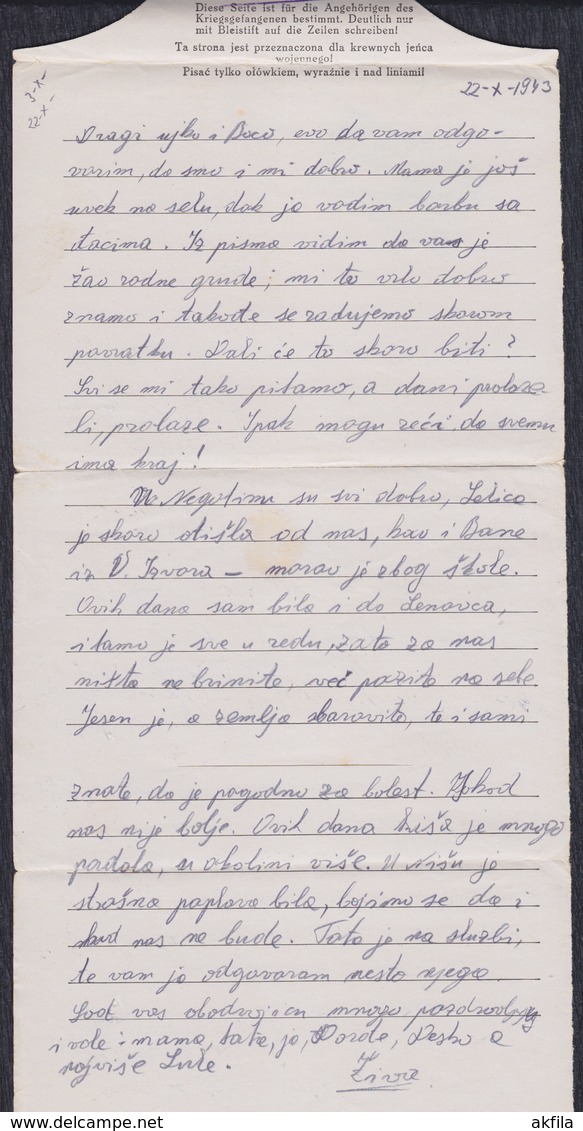 Diese Seite ist für die Angehörigen des
Kriegsgefangenen bestimmt. Deutlich nur
mit Bleistift auf die Zeilen schreiben!
Ta strona jest przeznaczona dla krewnych jeńca
wojennego!
Pisać tylko ołówkiem, wyraźnie i nad liniami!
3-X-
22-X-
22-X-1943
Dragi ujko i Boco, evo da vam odgo-
vorim, da smo i mi dobro. Mama je još
uvek na selu, dok ja vodim borbu sa
đacima. Iz pisma vidim da vam je
žao rodne grude; mi to vrlo dobro
znamo i takođe se radujemo skorom
povratku. Dali će to skoro biti?
Svi se mi tako pitamo, a dani prolaze
li, prolaze. Ipak mogu reći, da svemu
ima kraj!
U Negotinu su svi dobro, Letica
je skoro otišla od nas, kao i Bane
iz V. Izvora – morao je zbog škole.
Ovih dana sam bila i do Lenovca,
i tamo je sve u redu, zato za nas
ništa ne brinite, već pazite na sebe
Jesen je, a zemlja barovita, te i sami
znate, da je pogodno za bolest. I kod
nas nije bolje. Ovih dana kiša je mnogo
padala, u okolini više. U Nišu je
strašna poplava bila, bojimo se da i
kod nas ne bude. Tata je na službi,
te vam ja odgovaram mesto njega.
Svot vas obadvojicu mnogo pozdravljaju
i vole: mama, tata, ja, Đorđe, Desko a
najviše Lule.
Živra
© akfila